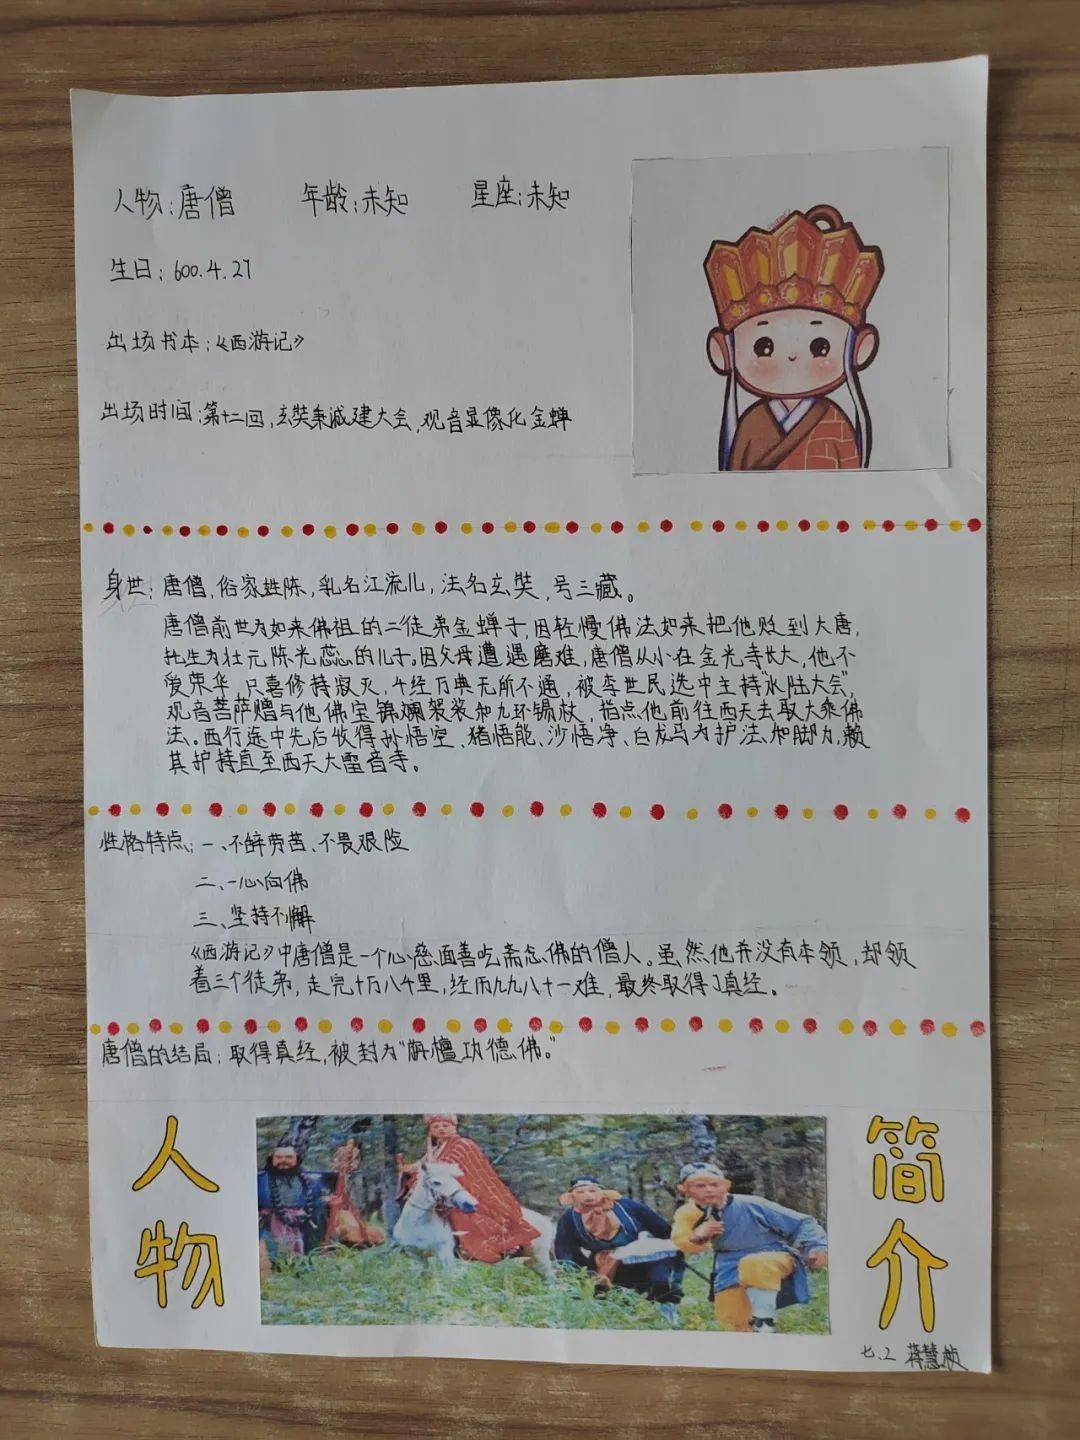 人物：唐僧 年龄：未知 星座：未知
生日：600.4.27
出场书本：《西游记》
出场时间：第十二回，玄奘秉诚建大会，观音显像化金蝉
身世：唐僧，俗家姓陈，乳名江流儿，法名玄奘，号三藏。
唐僧前世为如来佛祖的二徒弟金蝉子，因轻慢佛法如来把他贬到大唐，
托生为状元陈光蕊的儿子。因父母遭遇磨难，唐僧从小在金光寺长大，他不
爱荣华，只喜修持寂灭，千经万典无所不通，被李世民选中主持“水陆大会”，
观音菩萨赠与他佛宝锦斓袈裟和九环锡杖，指点他前往西天去取大乘佛
法。西行途中先后收得孙悟空、猪悟能、沙悟净、白龙马为护法和脚力，赖
其护持直至西天大雷音寺。
性格特点：一、不辞劳苦、不畏艰险
二、一心向佛
三、坚持不懈
《西游记》中唐僧是一个心慈面善吃斋念佛的僧人。虽然他并没有本领，却领
着三个徒弟，走完十万八千里，经历九九八十一难，最终取得了真经。
唐僧的结局：取得真经，被封为“旃檀功德佛。”
人物
简介
七.2 蒋慧桢